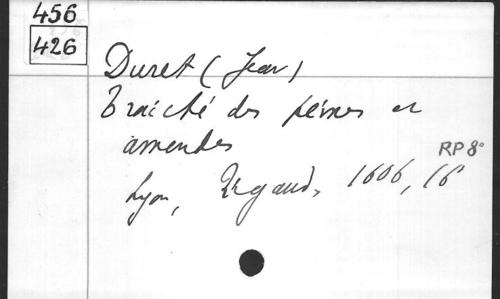 456
426
Duret (Jean)
Traicté des peines et
amendes
RP 8°
Lyon, Rigaud, 1606, 16°